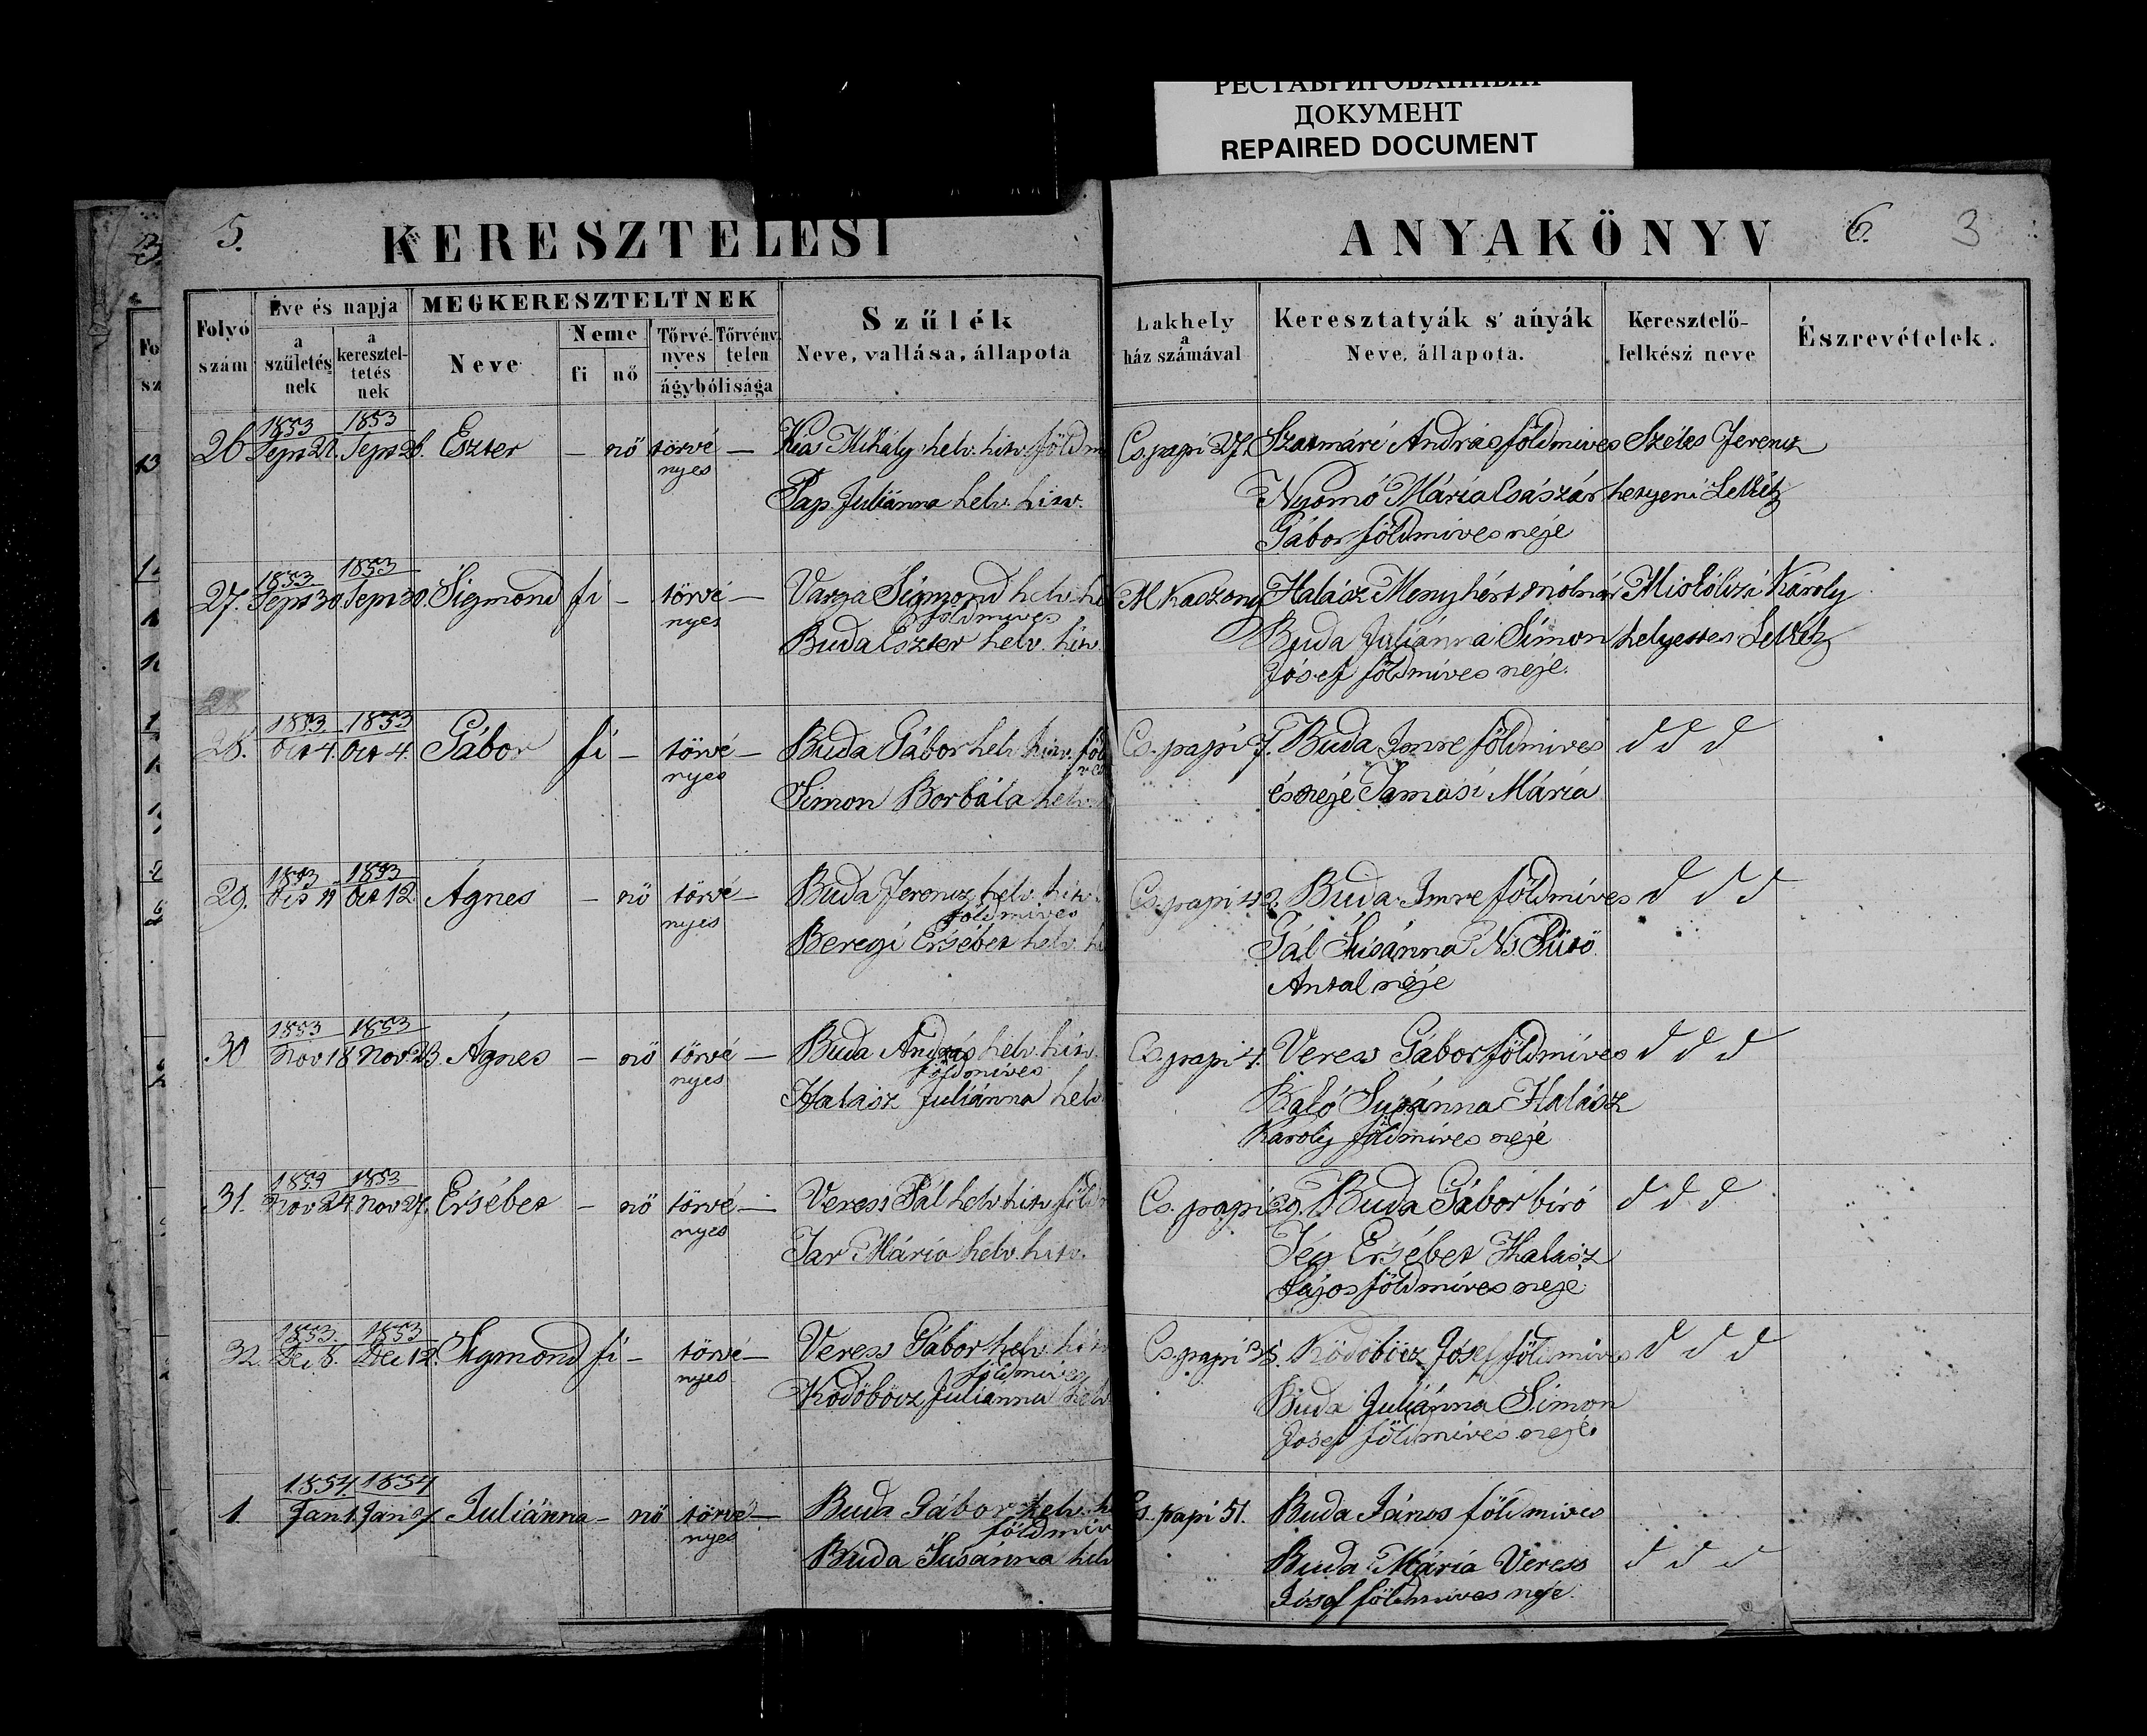 РЕСТАВРИРОВАННЫЙ
ДОКУМЕНТ
REPAIRED DOCUMENT
5.
KERESZTELESI
ANYAKÖNYV
6.
3
Folyó szám
Éve és napja
a születésnek
a kereszteltetésnek
MEGKERESZTELTNEK
Neve
Neme
fi
nő
Törvényes
Törvénytelen
ágybólisága
Szülék
Neve, vallása, állapota
Lakhely a ház számával
Keresztatyák s' anyák
Neve, állapota.
Keresztelő-lelkész neve
Észrevételek.
1853 1853
26 Sept Sept 26. Eszter — nő törvé — Kis Mihály helv. hitv. földm Cs. papi 27. Szatmári András földmives Széles Ferencz
nyes
Pap Juliánna helv. hitv. Nyomó Mária Császár hetyeni Lelkész
Gábor földmives neje
1853 1853
27. Sept 30. Sept 30. Sigmond fi — törvé — Varga Sigmond helv. hi M Kaszony Halász Menyhért molnár Miskólczi Károly
nyes földmives
Buda Eszter helv. hitv. Buda Juliánna Simon helyettes Lelkész
Jósef földmives neje.
28
1853 1853
28. Oct 4. Oct 4. Gábor fi — törvé — Buda Gábor helv. hitv. föl Cs. papi 7. Buda Imre földmives d d d
nyes
Simon Borbála helv. és neje Tamási Mária
1853 1853
29. Oct 11 Oct 12. Ágnes — nő törvé — Buda Ferencz helv. hitv. Cs. papi 42. Buda Imre földmives d d d
nyes földmives
Beregi Ersébet helv. hi Gál Susánna Ns. Sütő
Antal neje
1853 1853
30 Nov 18 Nov. 23. Ágnes — nő törvé — Buda András helv. hitv. Cs. papi 4. Veress Gábor földmives d d d
nyes földmives
Halász Juliánna helv Baló Susánna Halász
Károly földmives neje
1853 1853
31. Nov 24. Nov 27. Ersébet — nő törvé — Veress Pál helv hitv föld Cs. papi 29. Buda Gábor biró d d d
nyes
Tar Mária helv. hitv. Ersébet Halász
Lajos földmives neje
1853. 1853
32. Dec 8. Dec 12. Sigmond fi — törvé — Veress Gábor helv. hitv Cs. papi 35. Ködöböcz Jósef földmives d d d
nyes földmives
Ködöböcz Juliánna helv Buda Juliánna Simon
Josef földmives neje
1854. 1854
1. Jan. 1. Jan Juliánna — nő törvé — Buda Gábor helv. h Cs. papi 51. Buda János földmives
nyes földmiv
Buda Susánna helv Buda Mária Veress d d d
Jósef földmives neje.